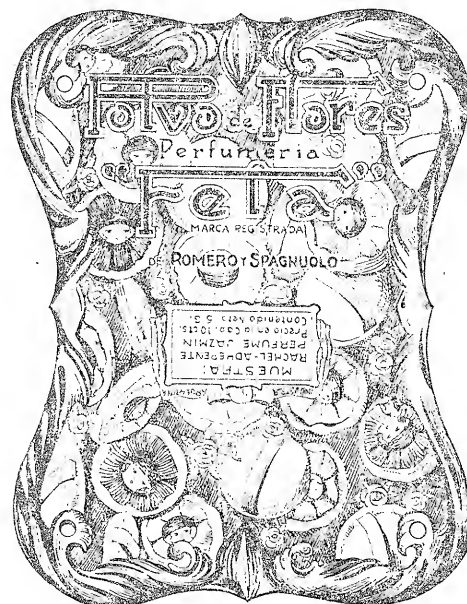 Polvo de Flores
Perfumeria
"Fela"
MARCA REGISTRADA
DE ROMERO Y SPAGNUOLO
MUESTRA:
RACHEL-ADHERENTE
PERFUME JAZMIN
Precio en la Cap. 10 cts.
Contenido Neto 5 G.